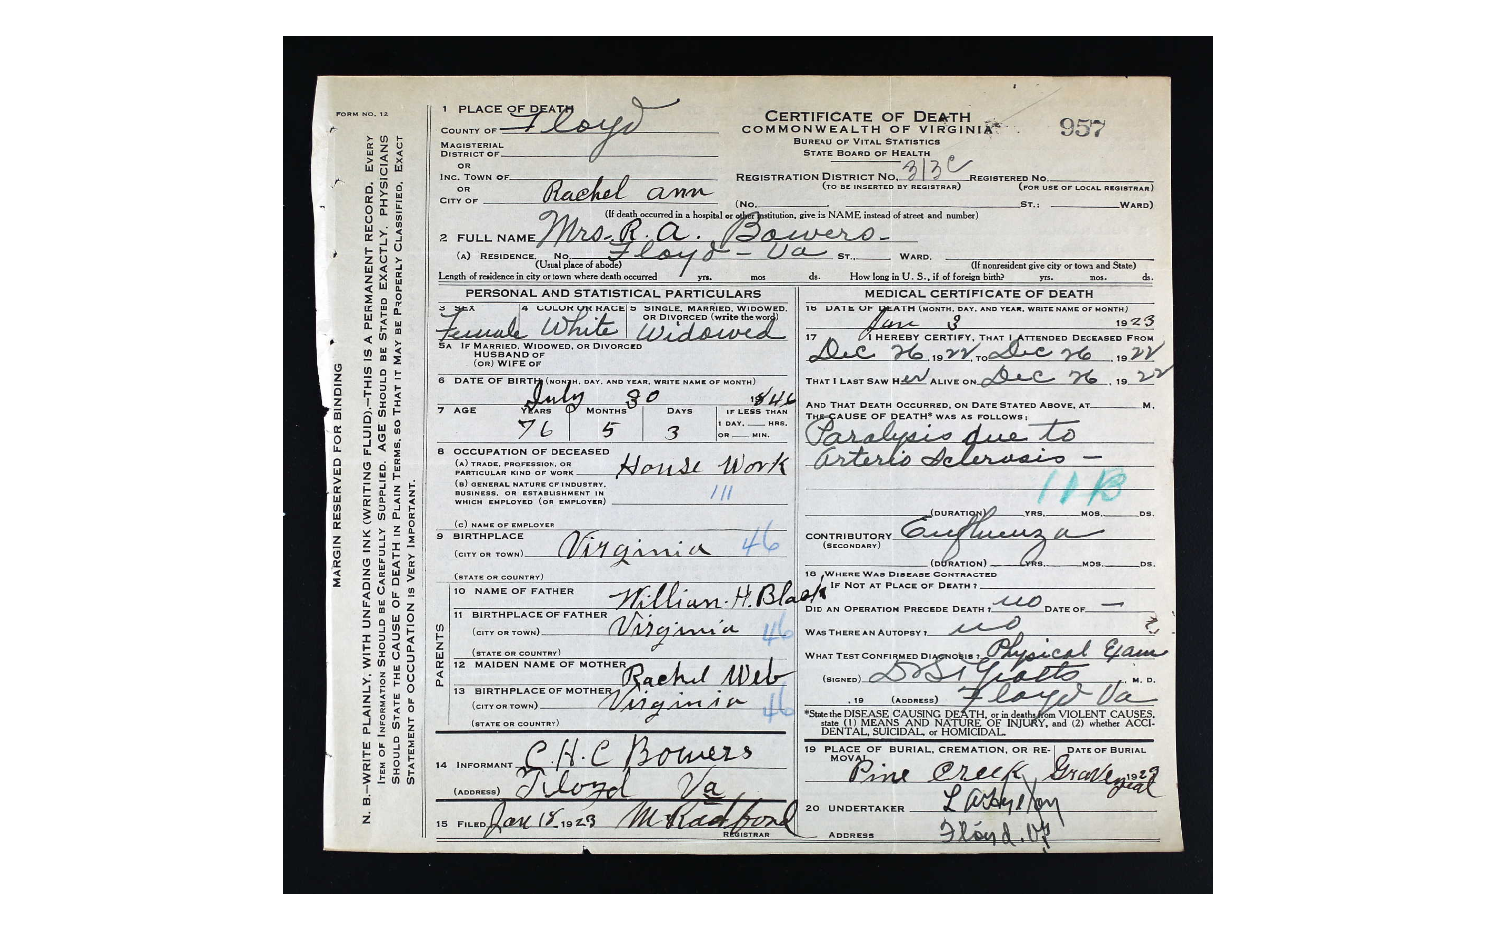 FORM NO. 12
MARGIN RESERVED FOR BINDING
N. B.—WRITE PLAINLY, WITH UNFADING INK (WRITING FLUID).—THIS IS A PERMANENT RECORD. EVERY
ITEM OF INFORMATION SHOULD BE CAREFULLY SUPPLIED. AGE SHOULD BE STATED EXACTLY. PHYSICIANS
SHOULD STATE THE CAUSE OF DEATH IN PLAIN TERMS, SO THAT IT MAY BE PROPERLY CLASSIFIED. EXACT
STATEMENT OF OCCUPATION IS VERY IMPORTANT.
1 PLACE OF DEATH
COUNTY OF Floyd
MAGISTERIAL
DISTRICT OF
OR
INC. TOWN OF
OR
CITY OF
CERTIFICATE OF DEATH
COMMONWEALTH OF VIRGINIA
957
BUREAU OF VITAL STATISTICS
STATE BOARD OF HEALTH
REGISTRATION DISTRICT NO. 313C REGISTERED NO.
(TO BE INSERTED BY REGISTRAR) (FOR USE OF LOCAL REGISTRAR)
Rachel ann
(NO. ST.; WARD)
(If death occurred in a hospital or other institution, give is NAME instead of street and number)
2 FULL NAME Mrs. R. A. Bowers
(A) RESIDENCE. NO. Floyd - Va ST., WARD.
(Usual place of abode) (If nonresident give city or town and State)
Length of residence in city or town where death occurred yrs. mos ds. How long in U. S., if of foreign birth? yrs. mos. ds.
PERSONAL AND STATISTICAL PARTICULARS
3 SEX 4 COLOR OR RACE 5 SINGLE, MARRIED, WIDOWED, OR DIVORCED (write the word)
Female White Widowed
5A IF MARRIED, WIDOWED, OR DIVORCED
HUSBAND OF
(OR) WIFE OF
6 DATE OF BIRTH (MONTH, DAY, AND YEAR, WRITE NAME OF MONTH)
July 30 1846
7 AGE YEARS MONTHS DAYS IF LESS THAN
1 DAY, HRS.
OR MIN.
76 5 3
8 OCCUPATION OF DECEASED
(A) TRADE, PROFESSION, OR
PARTICULAR KIND OF WORK House Work
(B) GENERAL NATURE OF INDUSTRY,
BUSINESS, OR ESTABLISHMENT IN
WHICH EMPLOYED (OR EMPLOYER)
111
(C) NAME OF EMPLOYER
9 BIRTHPLACE
(CITY OR TOWN) Virginia 46
(STATE OR COUNTRY)
PARENTS
10 NAME OF FATHER William H. Black
11 BIRTHPLACE OF FATHER
(CITY OR TOWN) Virginia 46
(STATE OR COUNTRY)
12 MAIDEN NAME OF MOTHER Rachel Web
13 BIRTHPLACE OF MOTHER
(CITY OR TOWN) Virginia 46
(STATE OR COUNTRY)
14 INFORMANT C. H. C Bowers
(ADDRESS) Floyd Va
15 FILED Jan 18 1923 M Radford
REGISTRAR
MEDICAL CERTIFICATE OF DEATH
16 DATE OF DEATH (MONTH, DAY, AND YEAR, WRITE NAME OF MONTH)
Jan 3 1923
17 I HEREBY CERTIFY, THAT I ATTENDED DECEASED FROM
Dec 26, 1922, TO Dec 26, 1922
THAT I LAST SAW Her ALIVE ON Dec 26, 1922
AND THAT DEATH OCCURRED, ON DATE STATED ABOVE, AT M.
THE CAUSE OF DEATH* WAS AS FOLLOWS:
Paralysis due to
Arterio Sclerosis -
11B
(DURATION) YRS. MOS. DS.
CONTRIBUTORY Influenza
(SECONDARY)
(DURATION) YRS. MOS. DS.
18 WHERE WAS DISEASE CONTRACTED
IF NOT AT PLACE OF DEATH?
DID AN OPERATION PRECEDE DEATH? no DATE OF —
WAS THERE AN AUTOPSY? no
WHAT TEST CONFIRMED DIAGNOSIS? Physical Exam
(SIGNED) M. D.
, 19 (ADDRESS) Floyd Va
*State the DISEASE CAUSING DEATH, or in deaths from VIOLENT CAUSES,
state (1) MEANS AND NATURE OF INJURY, and (2) whether ACCI-
DENTAL, SUICIDAL, or HOMICIDAL.
19 PLACE OF BURIAL, CREMATION, OR RE- DATE OF BURIAL
MOVAL
Pine Creek Grave 1923
20 UNDERTAKER
ADDRESS Floyd. Va